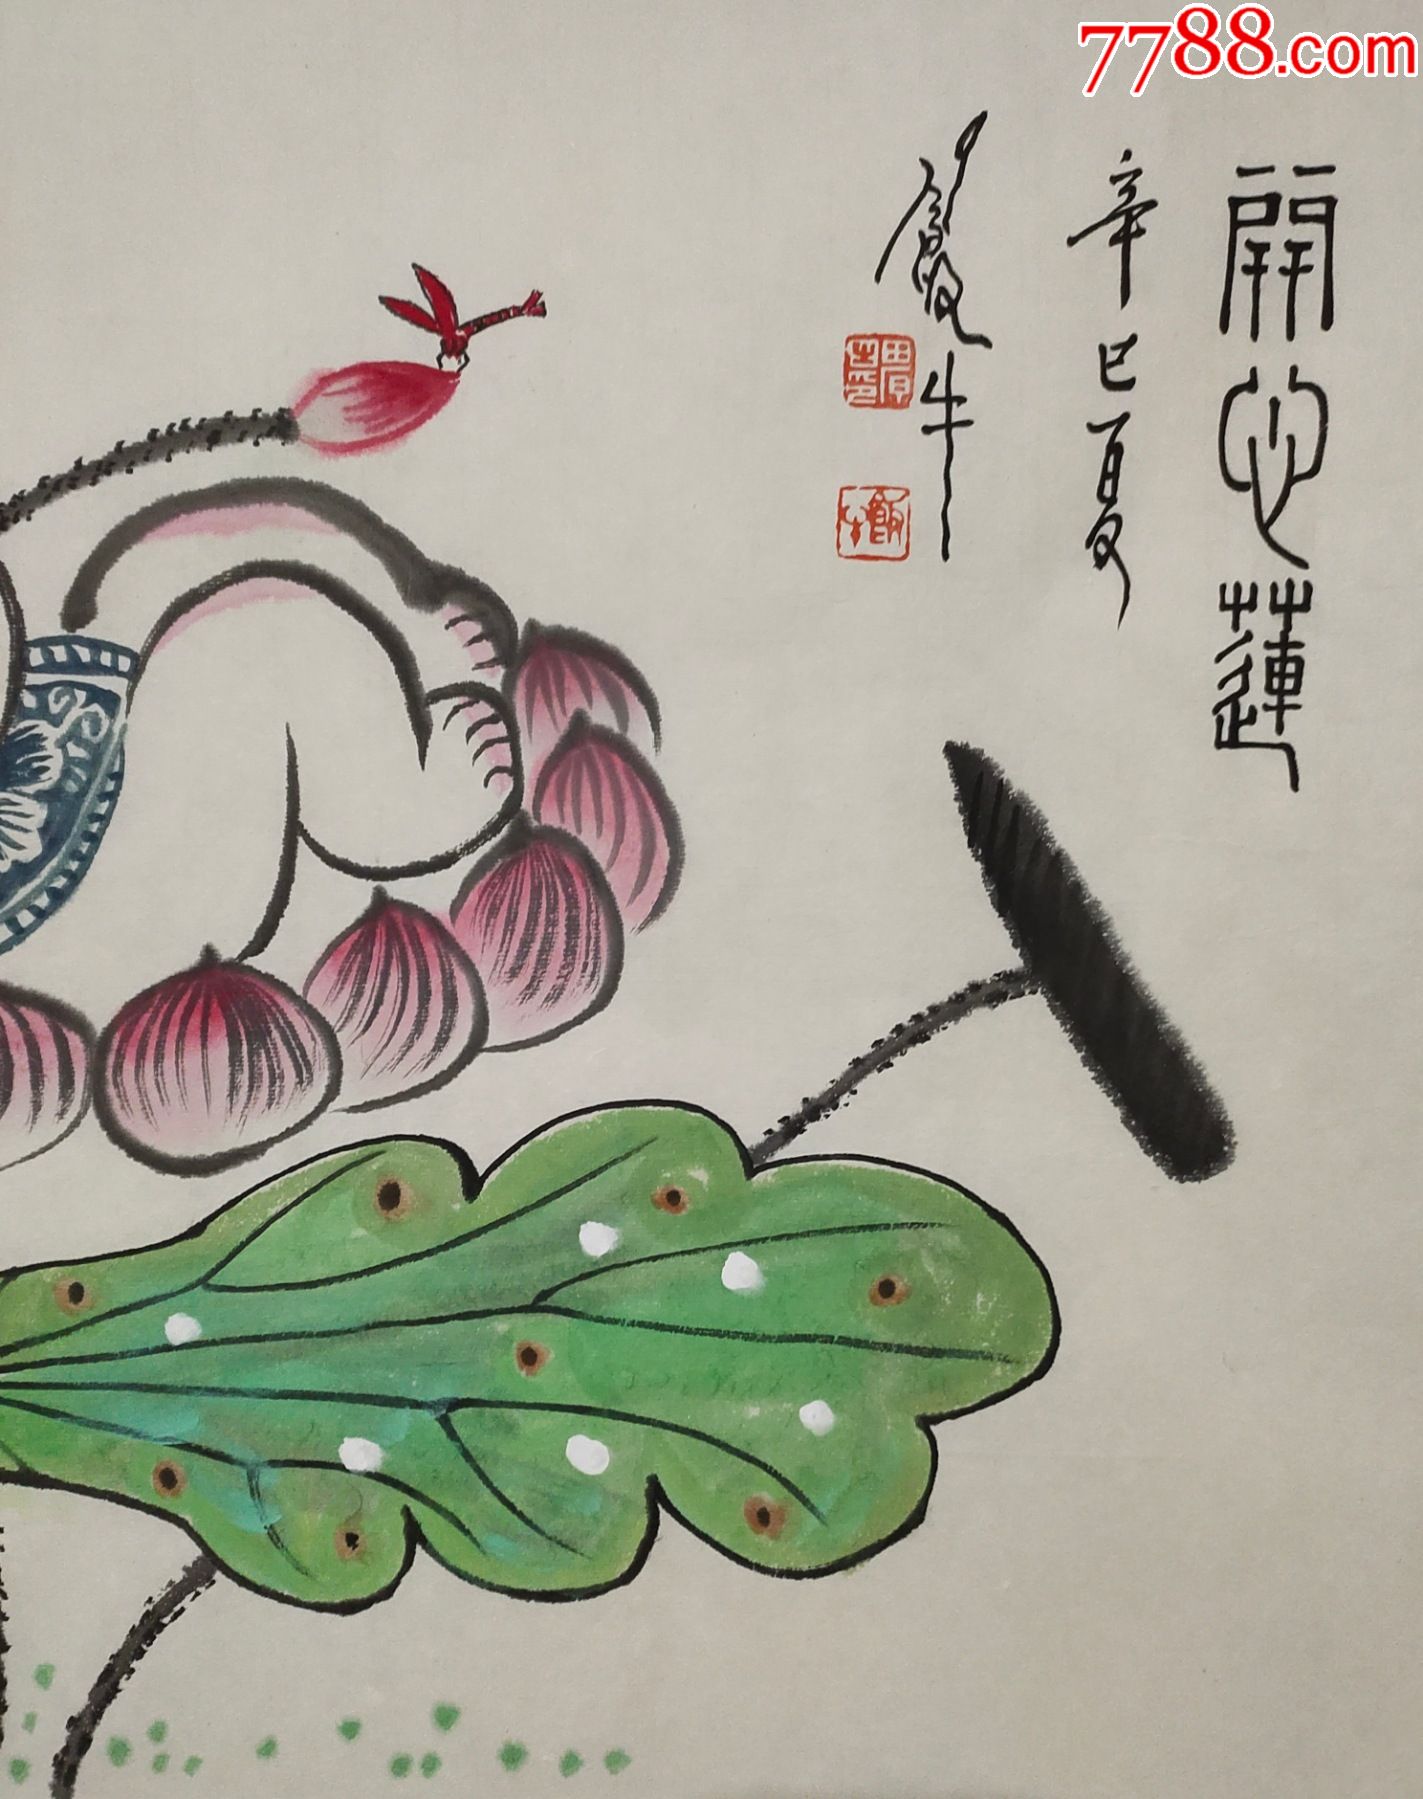 7788.com
開心蓮
辛巳夏
飯牛